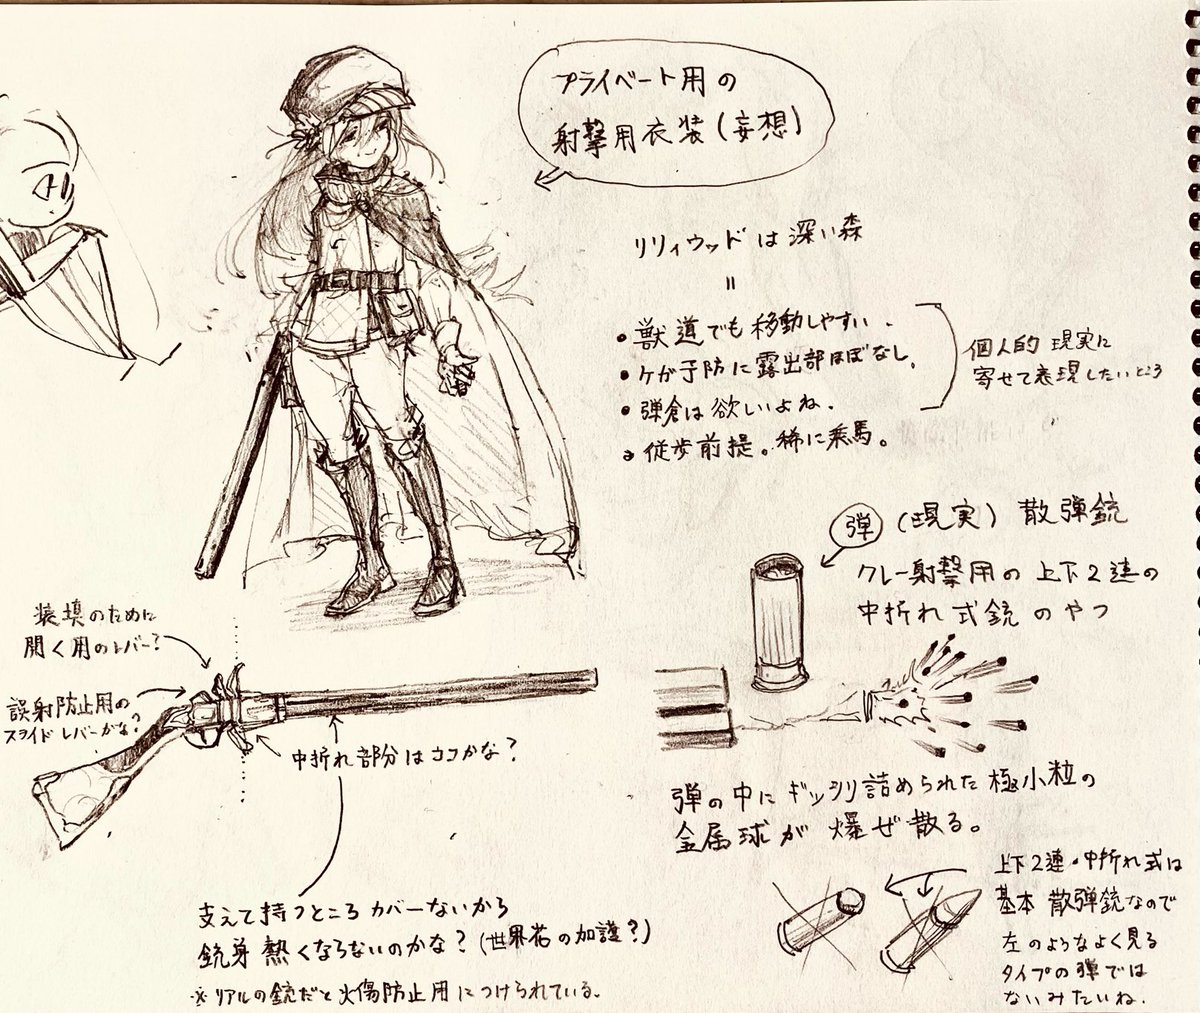 プライベート用の
射撃用衣装(妄想)
リリィウッドは深い森
=
・獣道でも移動しやすい.
・ケガ予防に露出部ほぼなし.
・弾倉は欲しいよね.
徒歩前提。稀に乗馬。
個人的現実に
寄せて表現したいところ
弾 (現実) 散弾銃
クレー射撃用の上下2連の
中折れ式銃のやつ
装填のために
開く用のレバー?
誤射防止用の
スライドレバーかな?
中折れ部分はココかな?
弾の中にギッシリ詰められた極小粒の
金属球が爆ぜ散る。
支えて持つところカバーないから
銃身熱くならないのかな?(世界花の加護?)
※リアルの銃だと火傷防止用につけられている。
上下2連・中折れ式は
基本散弾銃なので
左のようなよく見る
タイプの弾では
ないみたいね.